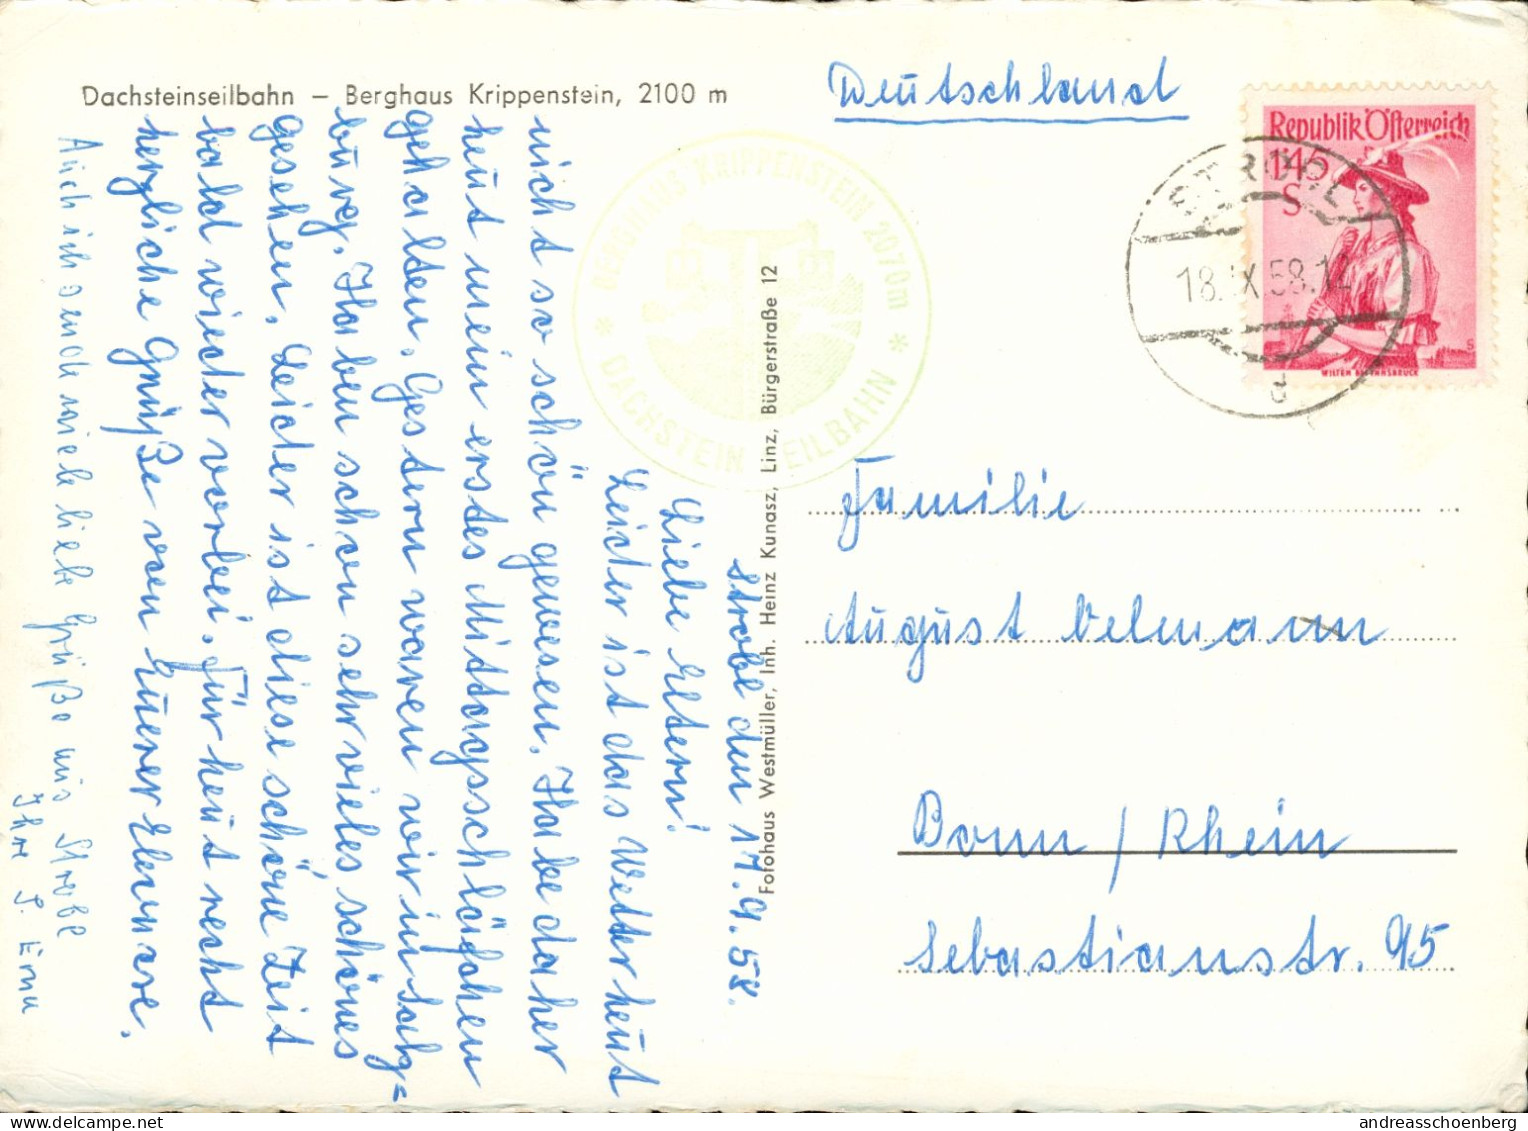 Dachsteinseilbahn – Berghaus Krippenstein, 2100 m
Strobl den 17.9.58.
Liebe Eltern!
Leider ist das Wetter heut
nicht so schön gewesen. Habe daher
heut mein erstes Mittagsschläfchen
gehalten. Gestern waren wir in Salz=
burg. Haben schon sehr vieles schönes
gesehen. Leider ist diese schöne Zeit
bald wieder vorbei. Für heut recht
herzliche Grüße von Eurer
Auch ich sende viele liebe Grüße aus Strobl
Ihre S. Erna
BERGHAUS KRIPPENSTEIN 2070m
* DACHSTEIN SEILBAHN *
Fotohaus Westmüller, Inh. Heinz Kunasz, Linz, Bürgerstraße 12
Deutschland
Republik Österreich
1'45
S
WILTEN BEI INNSBRUCK
STROBL
18.IX.58.14
d
Familie
August Velmann
Bonn / Rhein
Sebastianstr. 95
andreasschoenberg